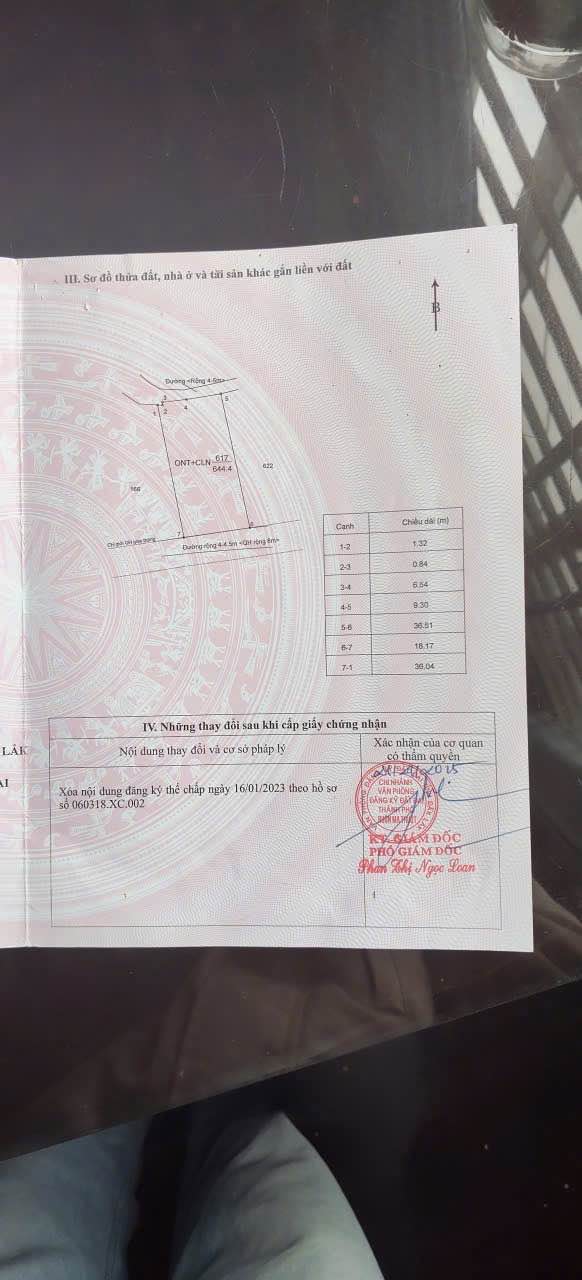 III. Sơ đồ thửa đất, nhà ở và tài sản khác gắn liền với đất
B
Đường <Rộng 4-5m>
3
5
1
2
4
ONT+CLN 617
644.4
622
166
7
6
Đường rộng 4-4.5m <QH rộng 8m>
Cạnh
Chiều dài (m)
1-2
1.32
2-3
0.84
3-4
6.54
4-5
9.30
5-6
36.51
6-7
18.17
7-1
36.04
IV. Những thay đổi sau khi cấp giấy chứng nhận
Nội dung thay đổi và cơ sở pháp lý
Xác nhận của cơ quan
có thẩm quyền
LẮK
ẠI
Xóa nội dung đăng ký thế chấp ngày 16/01/2023 theo hồ sơ
số 060318.XC.002
CHI NHÁNH
VĂN PHÒNG
ĐĂNG KÝ ĐẤT ĐAI
THÀNH PHỐ
BUÔN MA THUỘT
KT. GIÁM ĐỐC
PHÓ GIÁM ĐỐC
Phan Thị Ngọc Loan